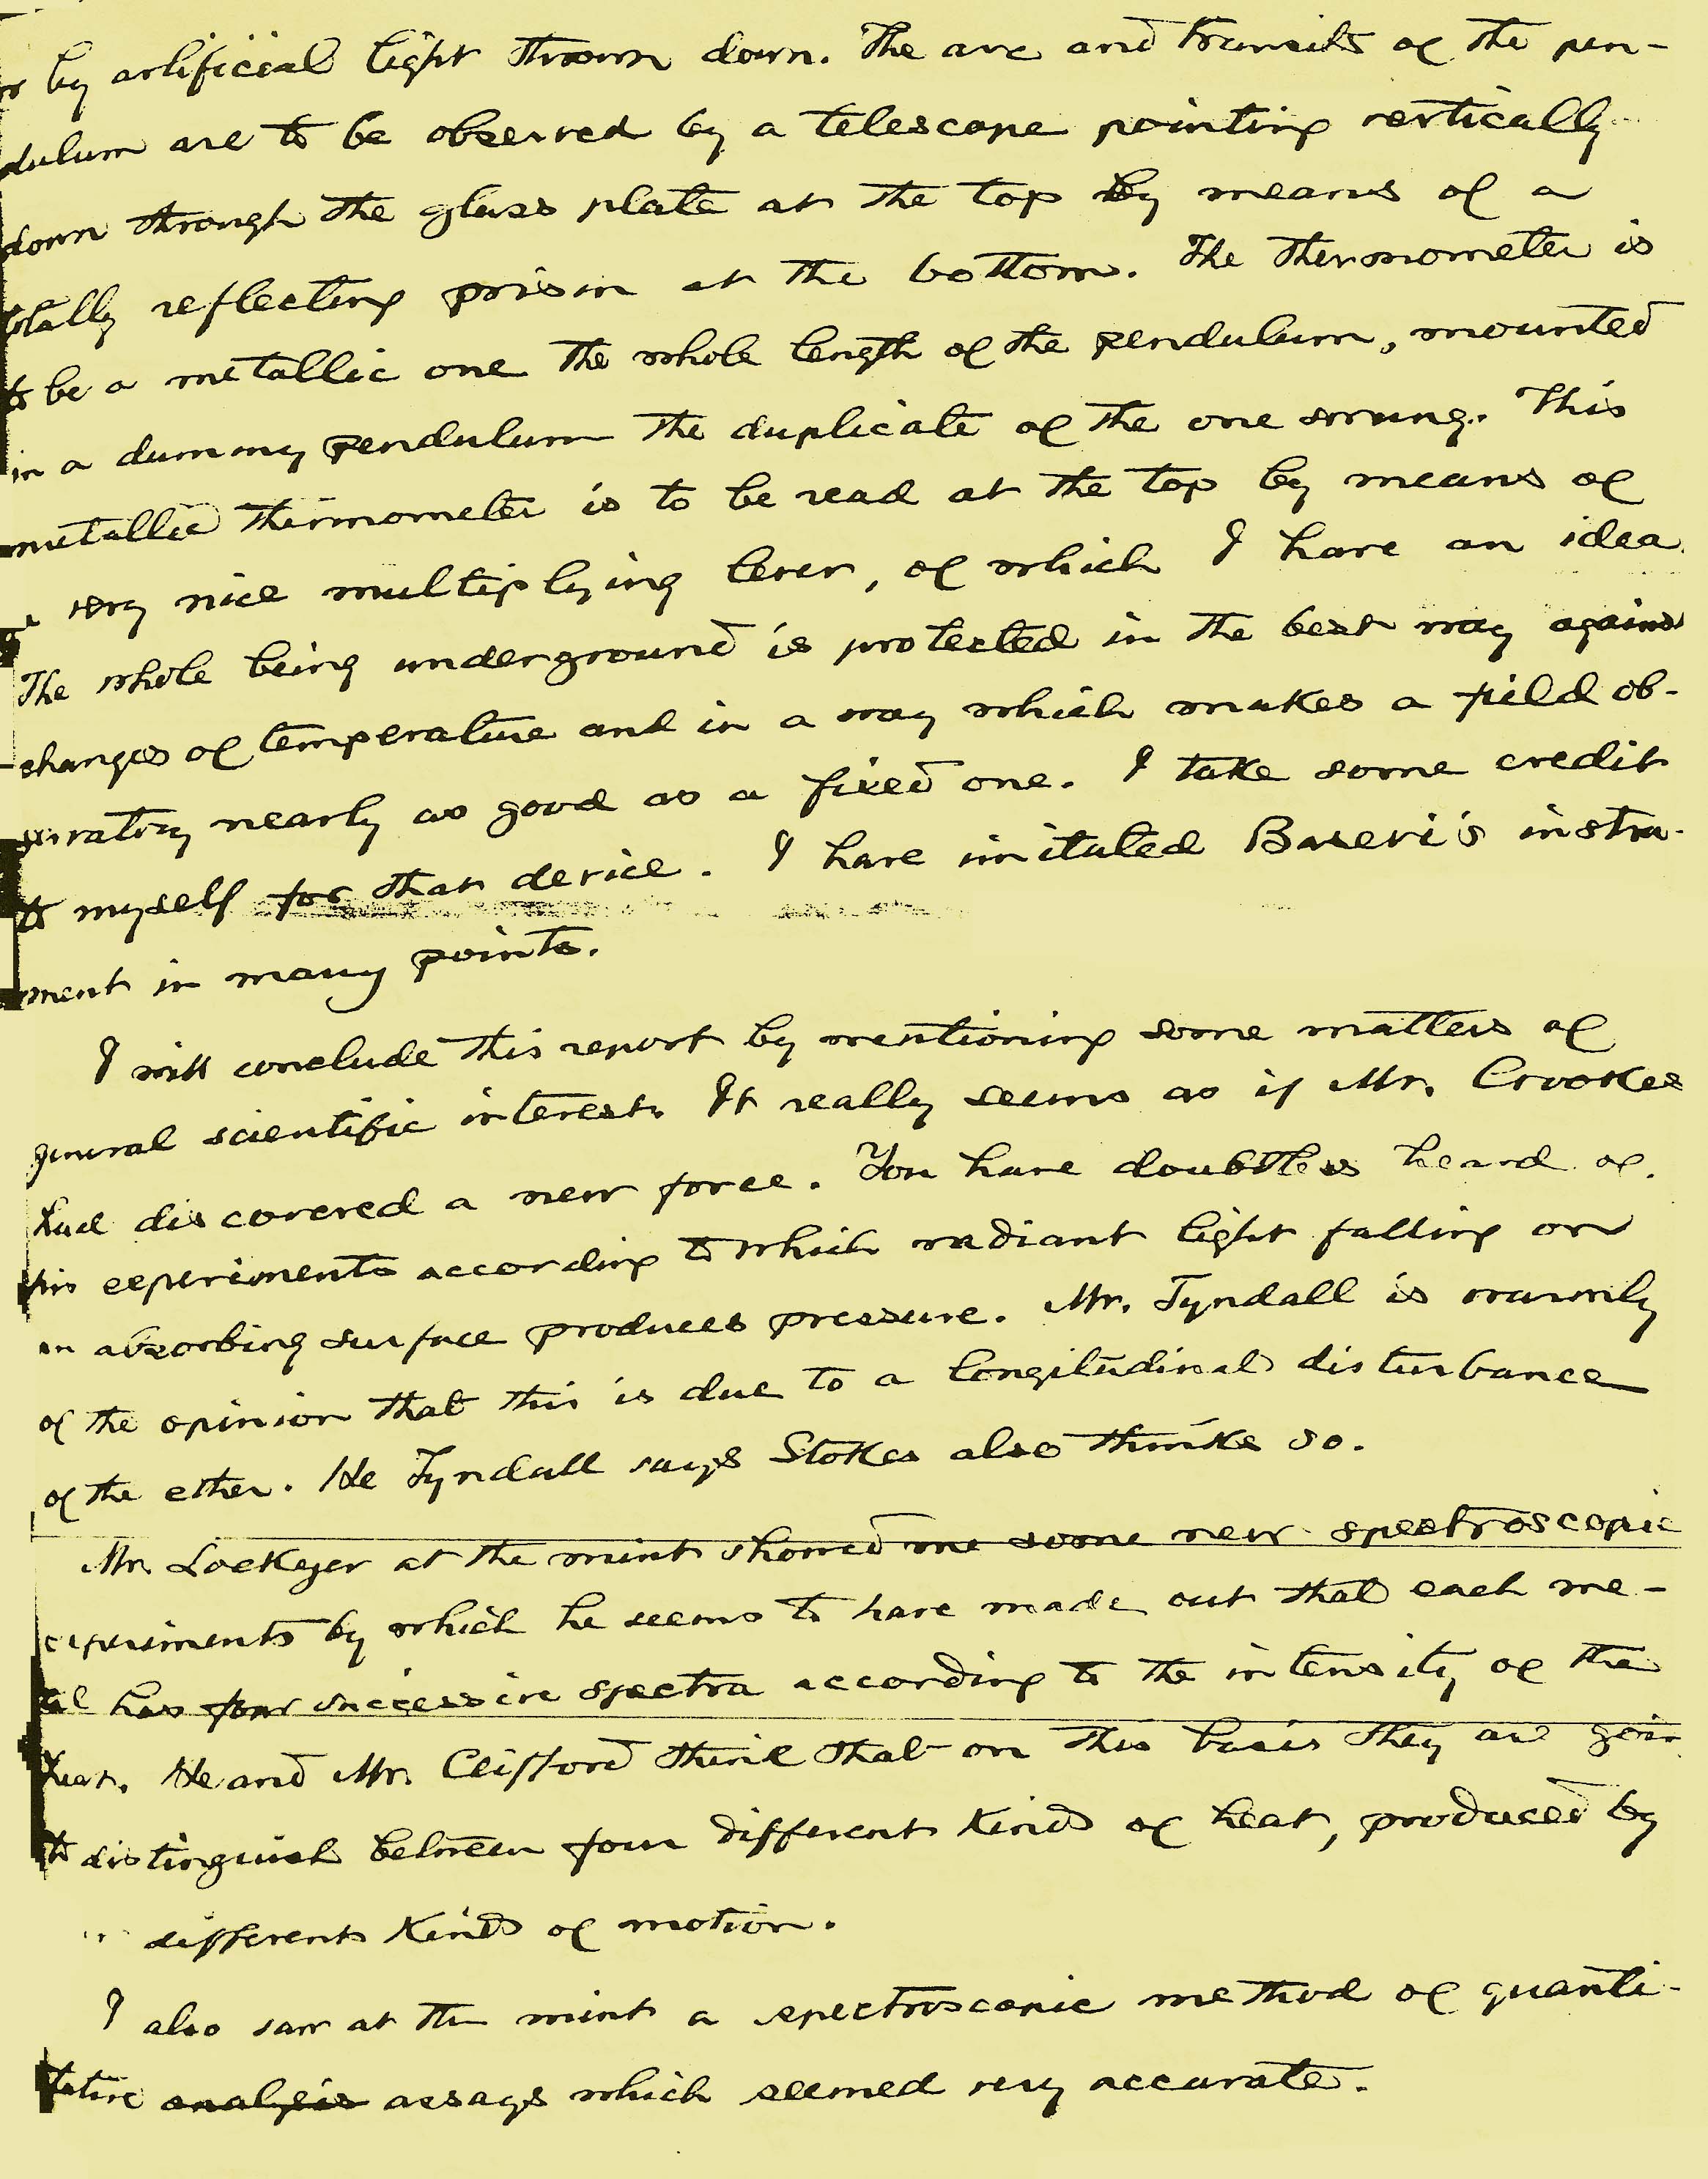 by artificial light thrown down. The arc and transits of the pen-
dulum are to be observed by a telescope pointing vertically
down through the glass plate at the top by means of a
totally reflecting prism at the bottom. The thermometer is
to be a metallic one the whole length of the pendulum, mounted
in a dummy pendulum the duplicate of the one swung. This
metallic thermometer is to be read at the top by means of
a very nice multiplying lever, of which I have an idea.
The whole being underground is protected in the best way against
changes of temperature and in a way which makes a field ob-
servatory nearly as good as a fixed one. I take some credit
to myself for that device. I have imitated Baseri's instru-
ment in many points.
I will conclude this report by mentioning some matters of
general scientific interest. It really seems as if Mr. Crookes
had discovered a new force. You have doubtless heard of
his experiments according to which radiant light falling on
an absorbing surface produces pressure. Mr. Tyndall is warmly
of the opinion that this is due to a longitudinal disturbance
of the ether. He Tyndall says Stokes also thinks so.
Mr. Lockyer at the mint showed me some new spectroscopic
experiments by which he seems to have made out that each me-
tal has four successive spectra according to the intensity of the
heat. He and Mr. Clifford think that on this basis they are goin
to distinguish between four different kinds of heat, produced by
different kinds of motion.
I also saw at the mint a spectroscopic method of quanti-
tative analysis assays which seemed very accurate.